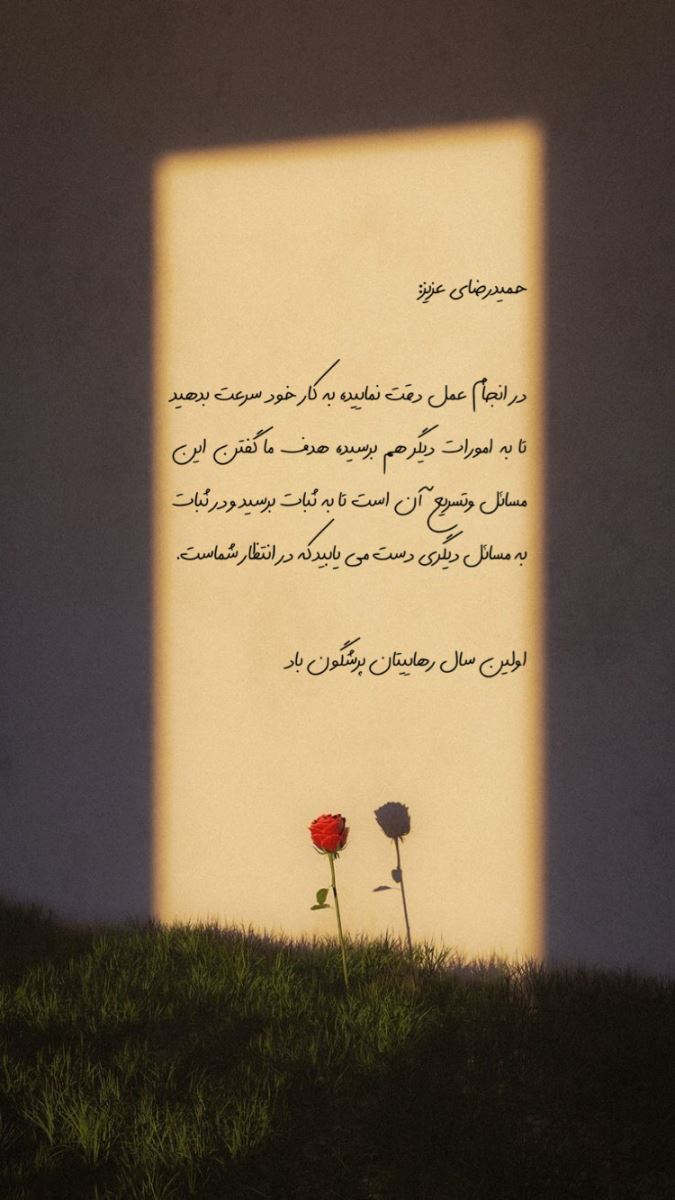 حمیدرضای عزیز:
در انجام عمل دقت نمایید، به کار خود سرعت بدهید
تا به امورات دیگر هم برسید، هدف ما گفتن این
مسائل وتسریع آن است تا به ثبات برسید و در ثبات
به مسائل دیگری دست می یابید که در انتظار شماست.
اولین سال رهاییتان پرشگون باد